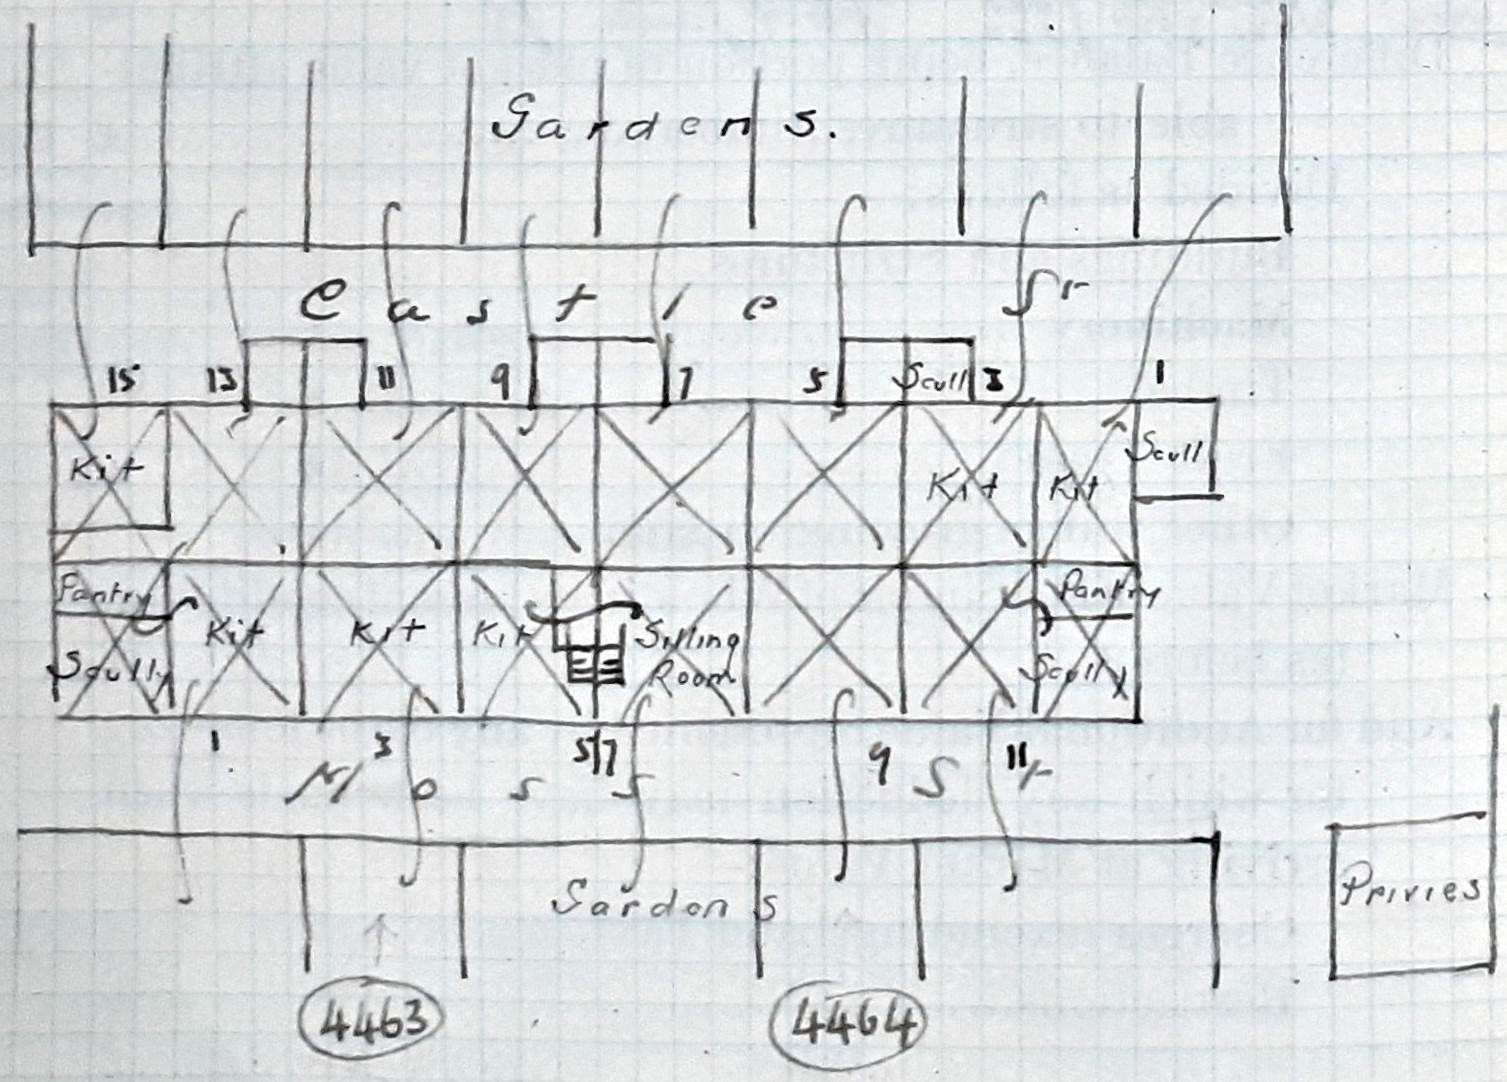 Gardens.
Castle St
15 13 11 9 7 5 Scull 3 1
Kit Kit Kit Scull
Pantry Pantry
Scully Kit Kit Kit Sitting Room Scully
1 3 5/7 9 11
Moss St
Gardens Privies
4463 4464